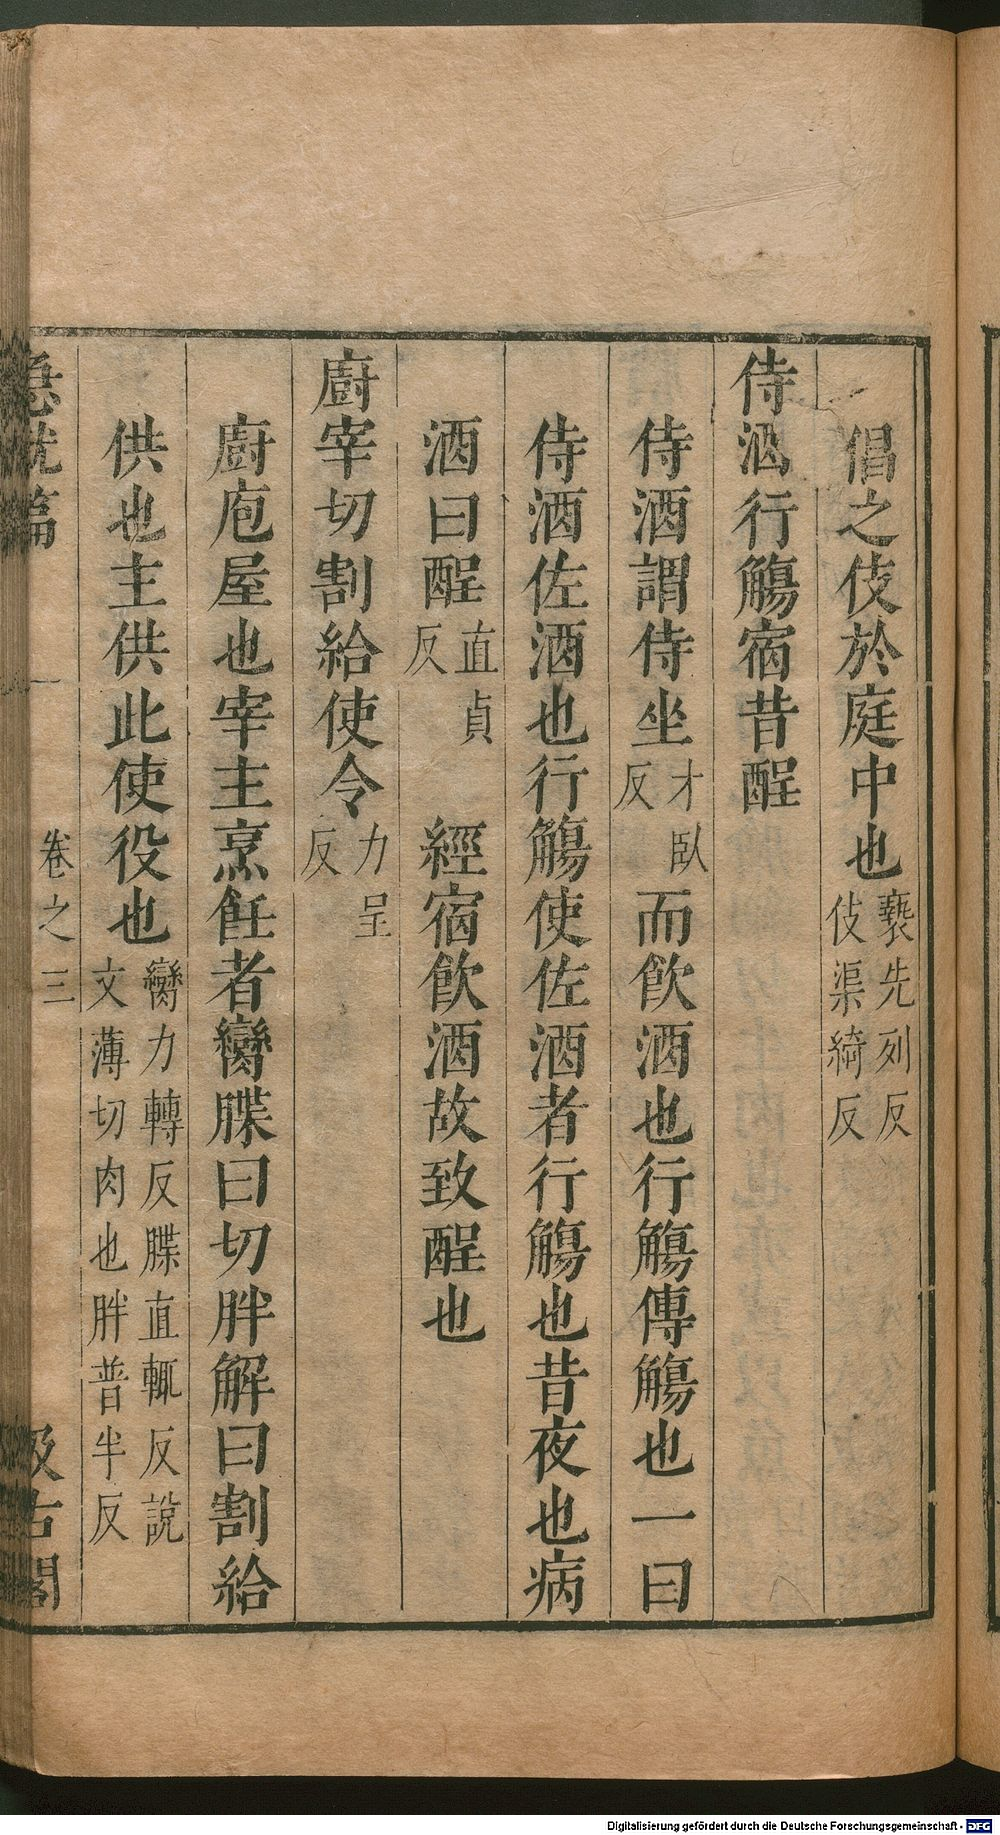 倡之伎於庭中也褻先列反伎渠綺反
侍酒行觴宿昔酲
侍酒謂侍坐才臥反而飲酒也行觴傳觴也一曰
侍酒佐酒也行觴使佐酒者行觴也昔夜也病
酒曰酲直貞反經宿飲酒故致酲也
廚宰切割給使令力呈反
廚庖屋也宰主烹飪者臠牒曰切胖解曰割給
供也主供此使役也臠力轉反牒直輒反說文薄切肉也胖普半反
急就篇 卷之三 汲古閣
Digitalisierung gefördert durch die Deutsche Forschungsgemeinschaft - DFG